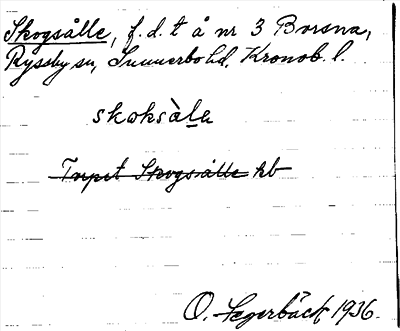 Skogsålle, f.d. t å nr 3 Borsna,
Ryssby sn, Sunnerbo hd. Kronob. l.
skoksàlе
Torpet Skogsålle hb
O. Segerbäck 1936.